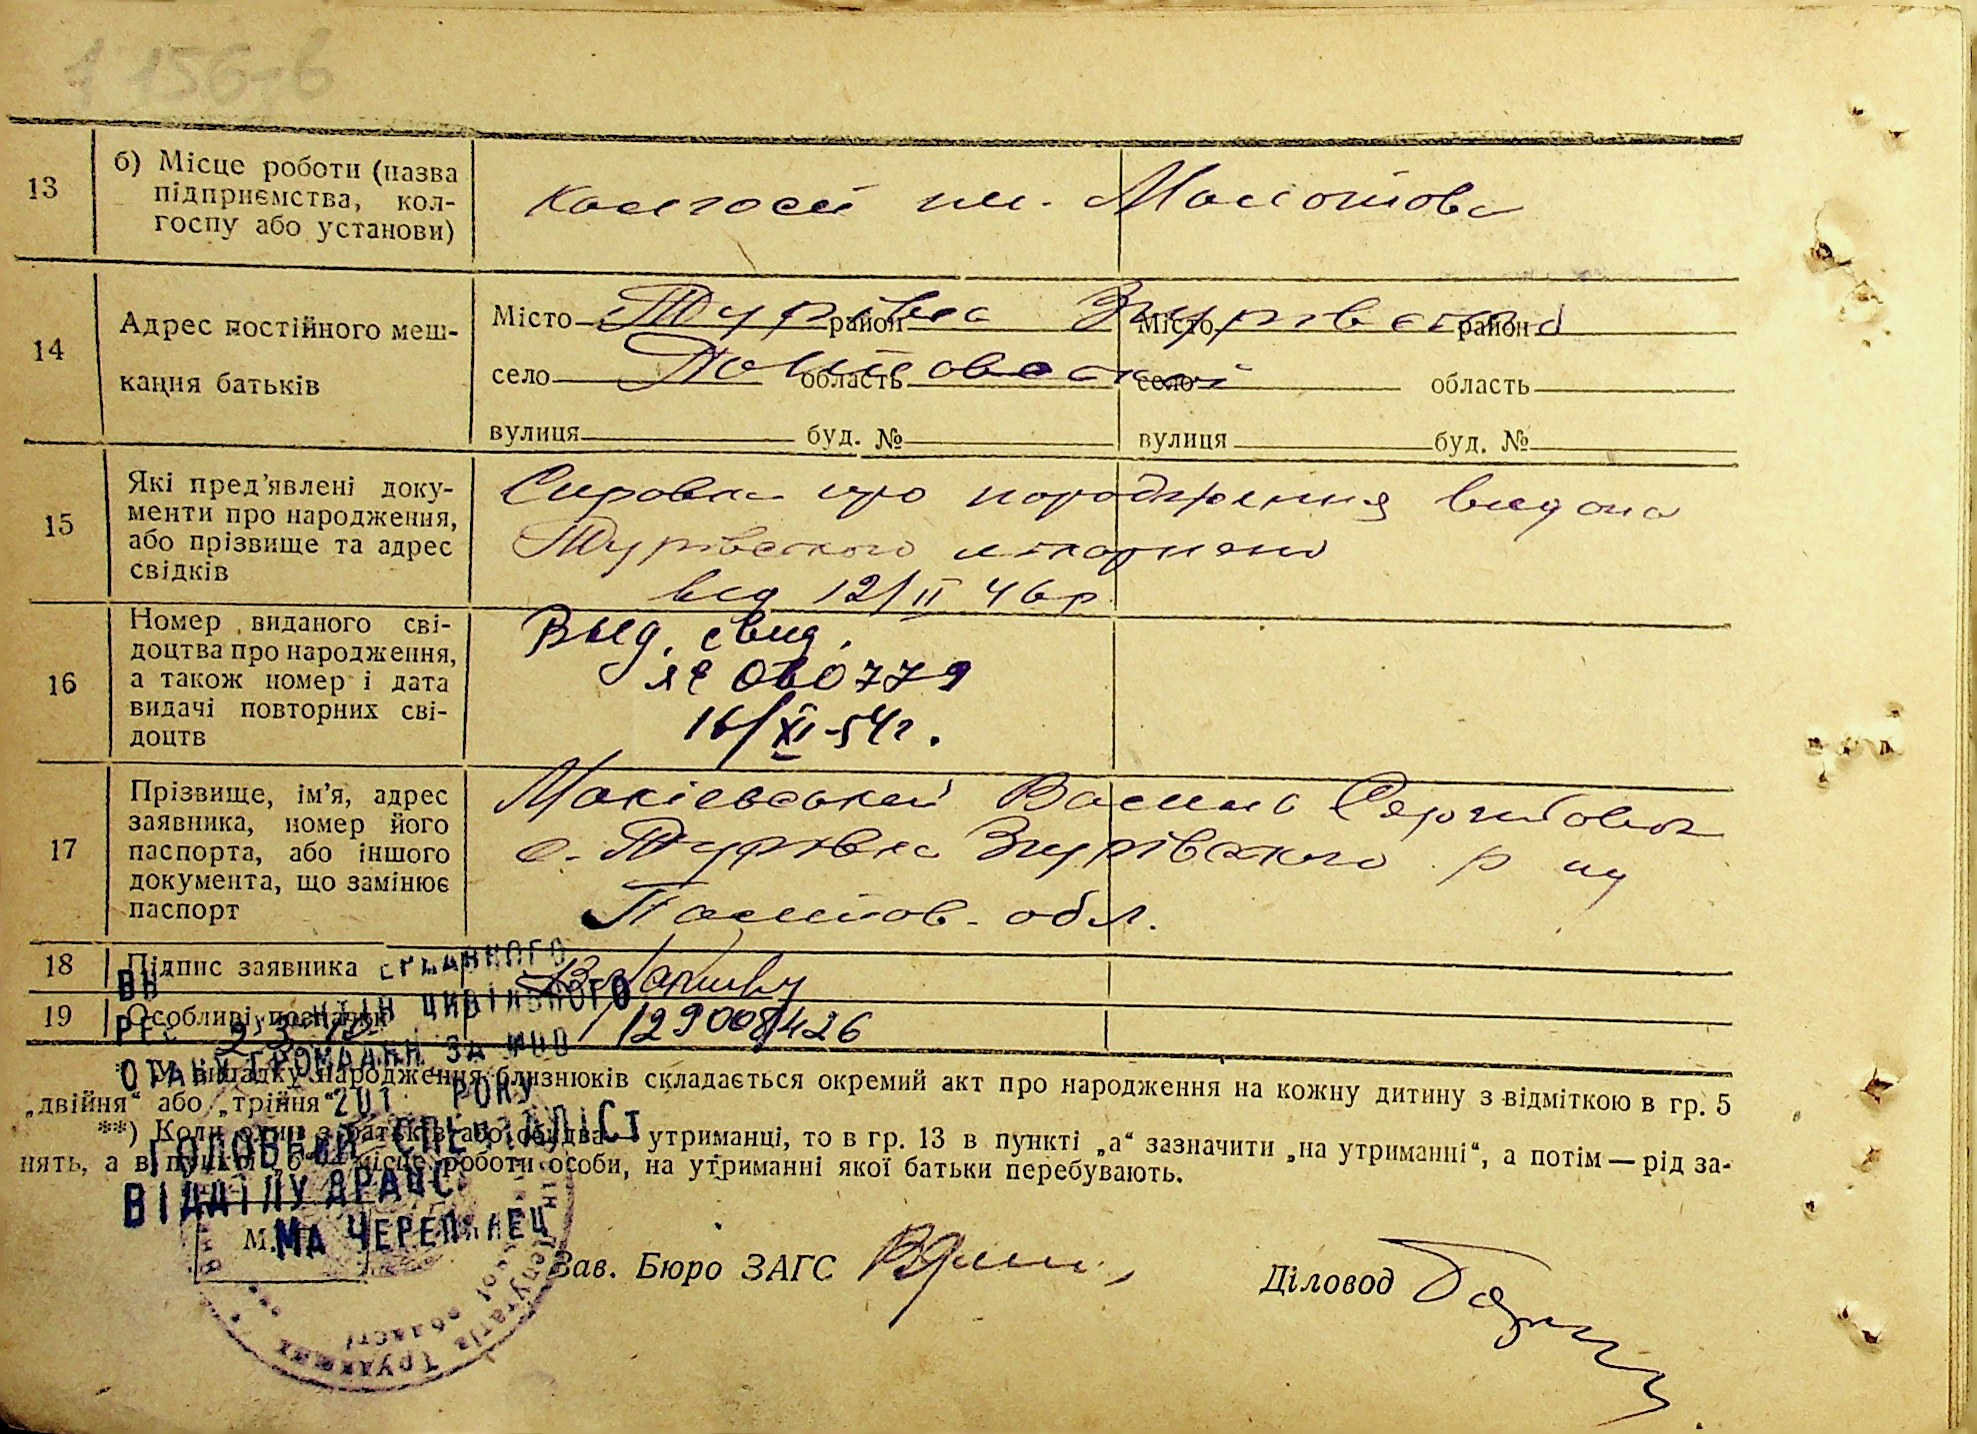 1 156-б
13
б) Місце роботи (назва
підприємства, кол-
госпу або установи)
колгосп им. Молотова
14
Адрес постійного меш-
кання батьків
Місто Турівка район Згурівський Місто район
село Полтавської область село область
вулиця буд. № вулиця буд. №
15
Які пред’явлені доку-
менти про народження,
або прізвище та адрес
свідків
Справка про народження видана
Турівского
від 12/II 46р
16
Номер виданого сві-
доцтва про народження,
а також номер і дата
видачі повторних сві-
доцтв
Выд. свид.
060779
16/XI-54г.
17
Прізвище, ім’я, адрес
заявника, номер його
паспорта, або іншого
документа, що замінює
паспорт
Макіевський Василь Сергійович
с. Турівка Згурівського р ну
Полтов. обл.
18
Підпис заявника
19
Особливі позначки
*) У випадку народження близнюків складається окремий акт про народження на кожну дитину з відміткою в гр. 5
„двійня“ або „трійня“
**) Коли один з батьків або обидва — утриманці, то в гр. 13 в пункті „а“ зазначити „на утриманні“, а потім — рід за-
нять, а в пункті „б“ — місце роботи особи, на утриманні якої батьки перебувають.
ЦИВІЛЬНОГО
СТАНУ ГРОМАДЯН ЗА
201 РОКУ
ГОЛОВНИЙ СПЕЦІАЛІСТ
ВІДДІЛУ ДРАЦС
МА ЧЕРЕПЯНЕЦ
М.
Зав. Бюро ЗАГС
Діловод
депутатів трудящих
області